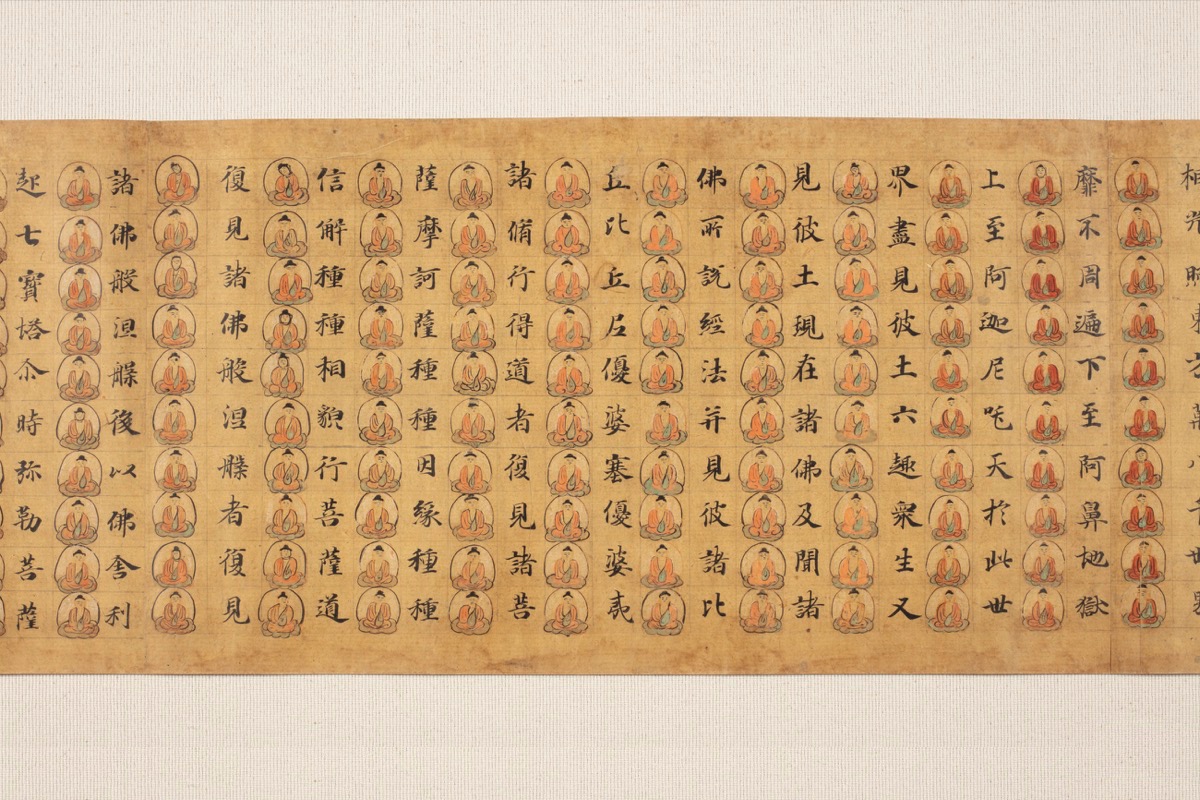 靡不周遍下至阿鼻地獄
上至阿迦尼吒天於此世
界盡見彼土六趣衆生又
見彼土現在諸佛及聞諸
佛所說經法并見彼諸比
丘比丘尼優婆塞優婆夷
諸脩行得道者復見諸菩
薩摩訶薩種種因緣種種
信解種種相貌行菩薩道
復見諸佛般涅槃者復見
諸佛般涅槃後以佛舍利
起七寶塔尒時弥勒菩薩